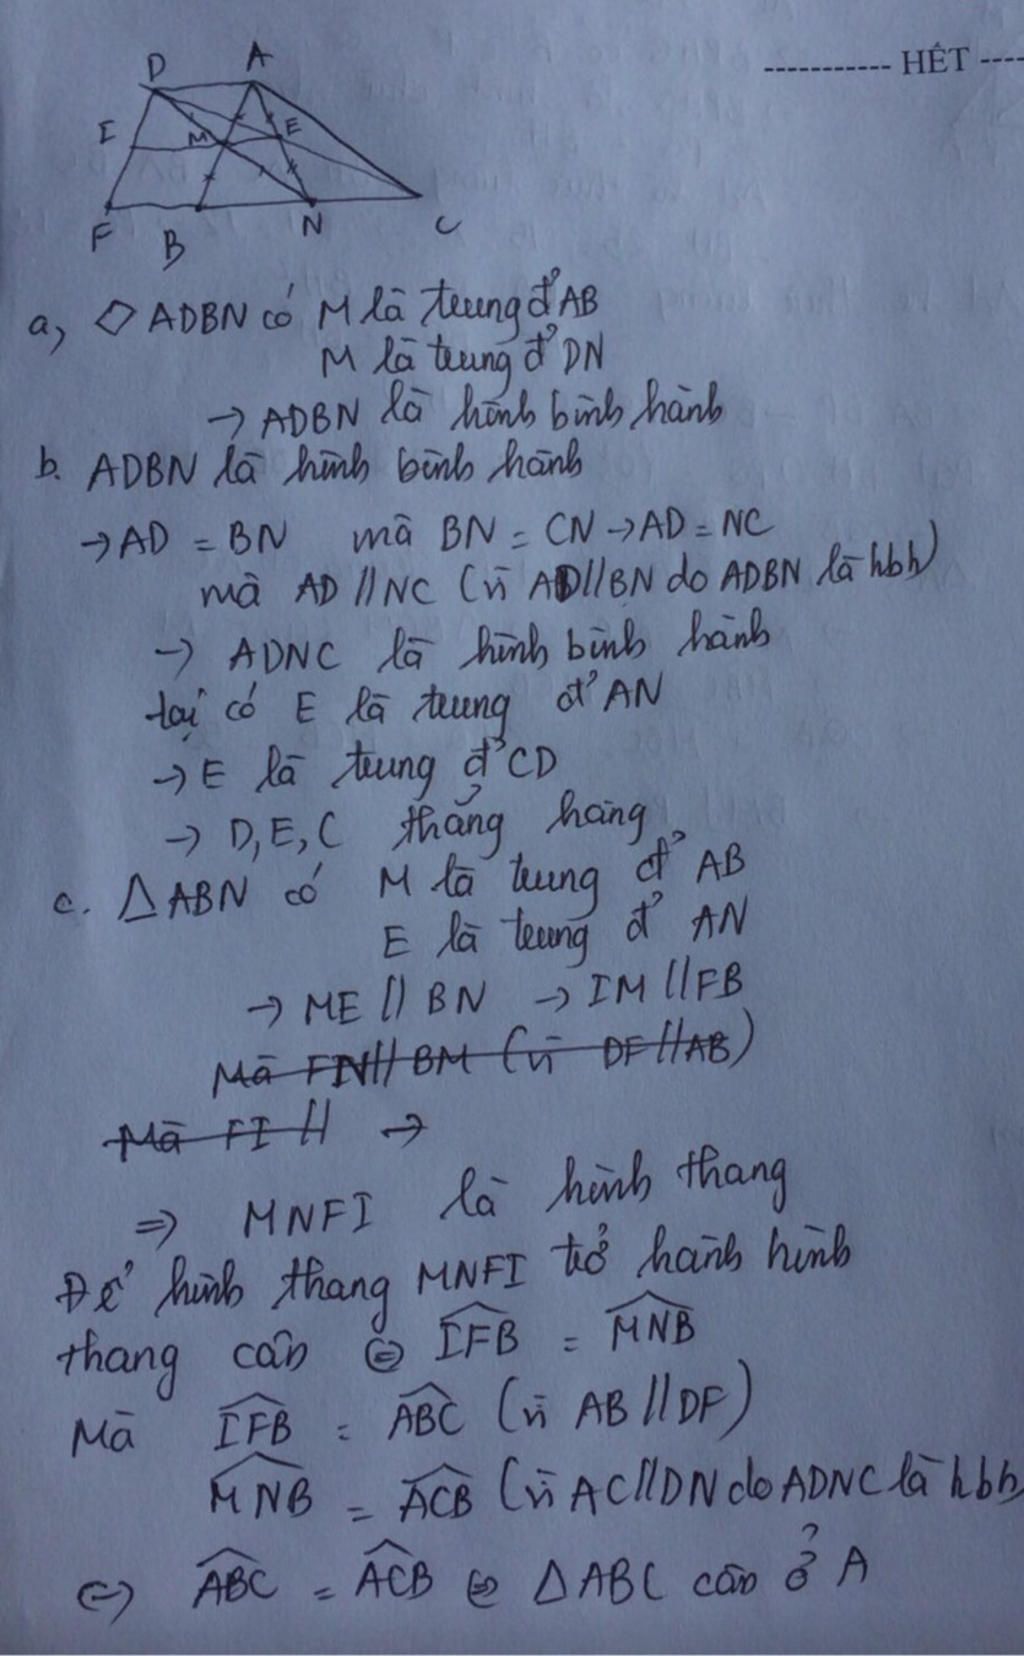 ----------- HẾT ----
D A
I M E
F B N C
a, ◇ ADBN có M là trung đ' AB
M là trung đ' DN
→ ADBN là hình bình hành
b. ADBN là hình bình hành
→ AD = BN mà BN = CN → AD = NC
mà AD // NC (vì AD // BN do ADBN là hbh)
→ ADNC là hình bình hành
lại có E là trung đ' AN
→ E là trung đ' CD
→ D, E, C thẳng hàng
c. △ABN có M là trung đ' AB
E là trung đ' AN
→ ME // BN → IM // FB
Mà FN // BM (vì DF // AB)
Mà FI // →
⇒ MNFI là hình thang
Để hình thang MNFI trở hành hình
thang cân ⇔ \widehat{IFB} = \widehat{MNB}
Mà \widehat{IFB} = \widehat{ABC} (vì AB // DF)
\widehat{MNB} = \widehat{ACB} (vì AC // DN do ADNC là hbh
⇔ \widehat{ABC} = \widehat{ACB} ⇔ △ABC cân ở A